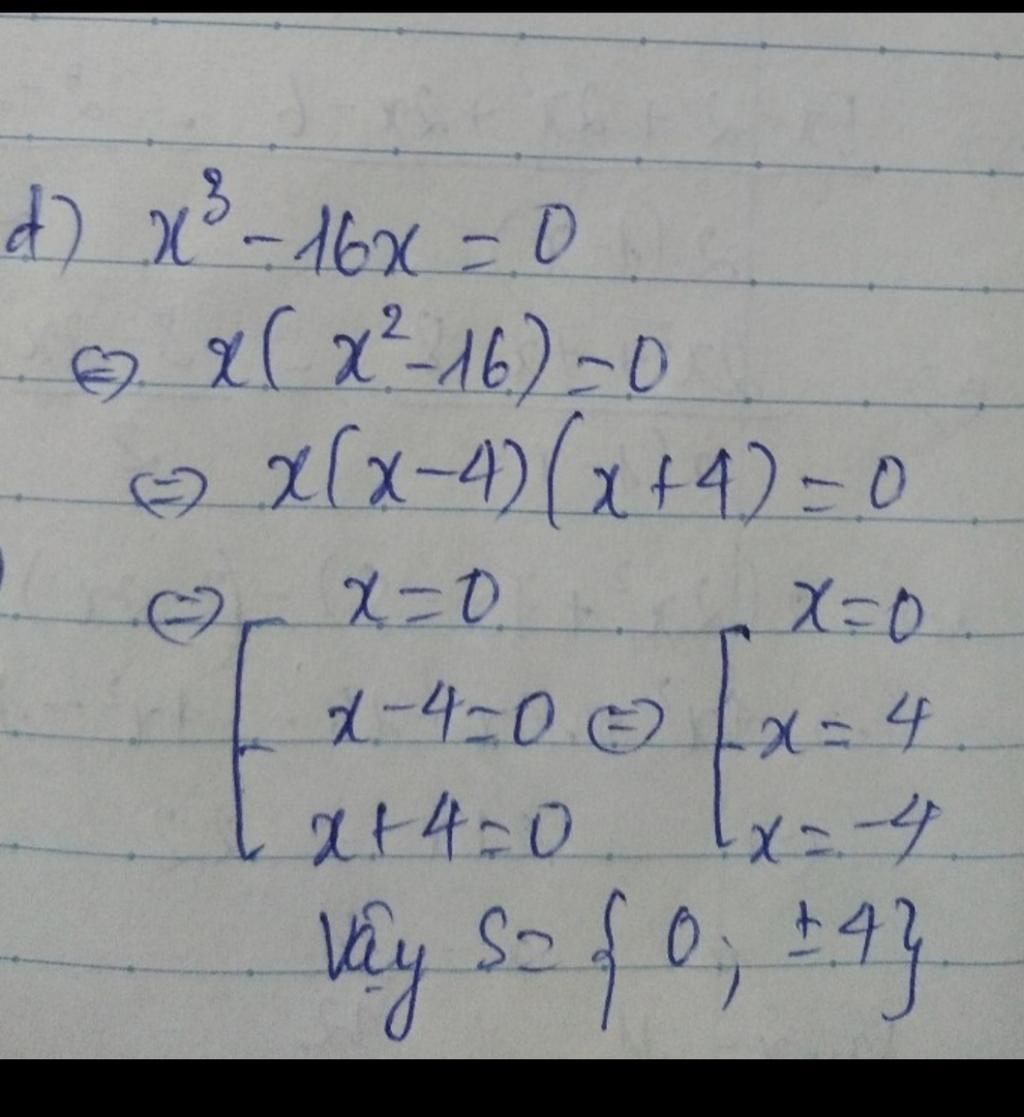 d) x³ - 16x = 0
⇔ x( x² - 16) = 0
⇔ x(x - 4)(x + 4) = 0
⇔ [ x = 0 [ x = 0
x - 4 = 0 ⇔ x = 4
x + 4 = 0 x = -4
Vậy S = { 0 ; ± 4}